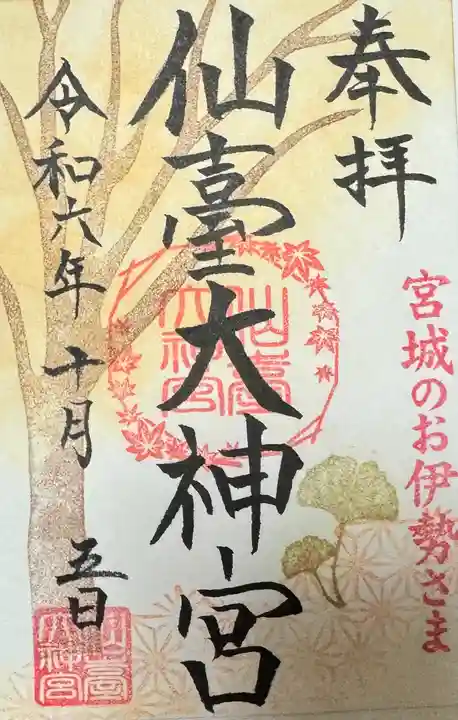 奉拝
宮城のお伊勢さま
仙臺大神宮
仙臺
大神宮
令和六年十月五日
仙臺
大神宮